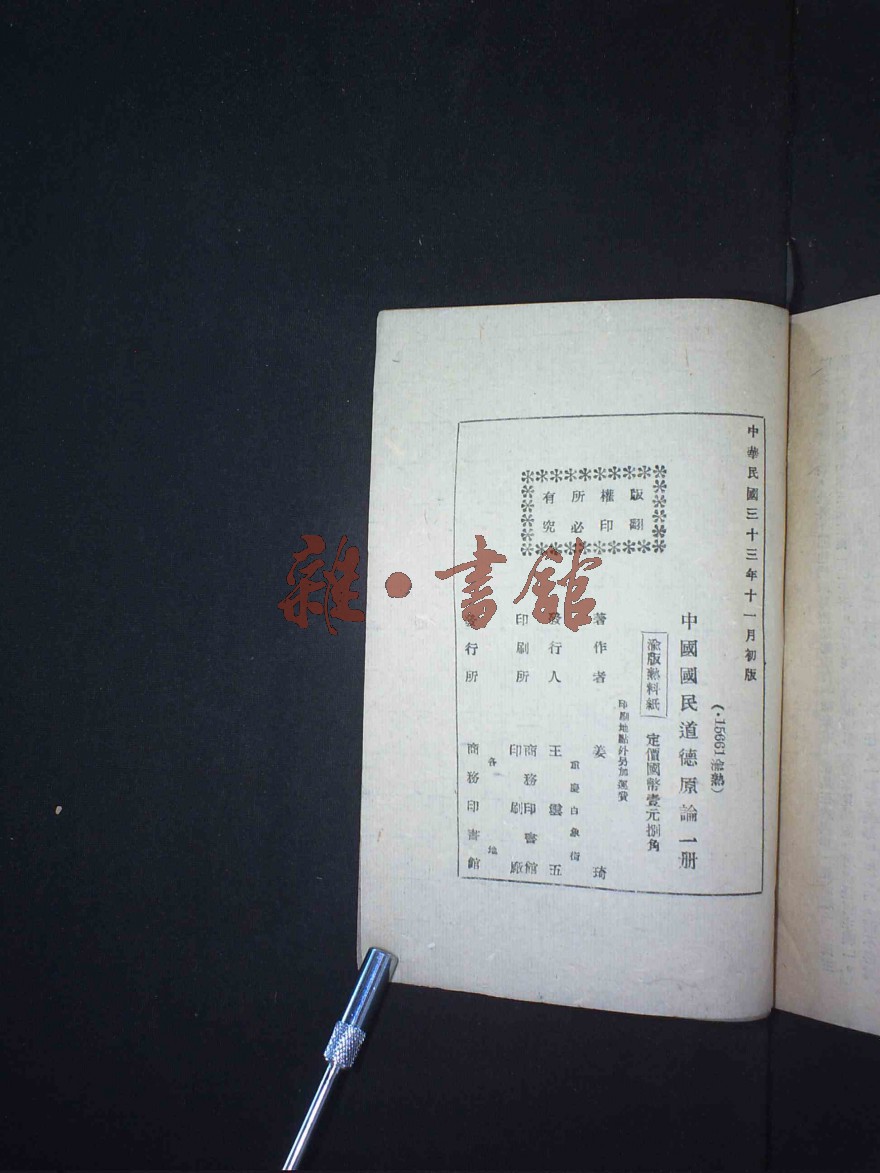 中華民國三十三年十一月初版
(·15661渝熱)
中國國民道德原論一册
渝版熟料紙 定價國幣壹元捌角
印刷地點外另加運費
版權所有
翻印必究
著作者 姜琦
重慶白象街
發行人 王雲五
印刷所 商務印書館印刷廠
各地
發行所 商務印書館
雜·書館